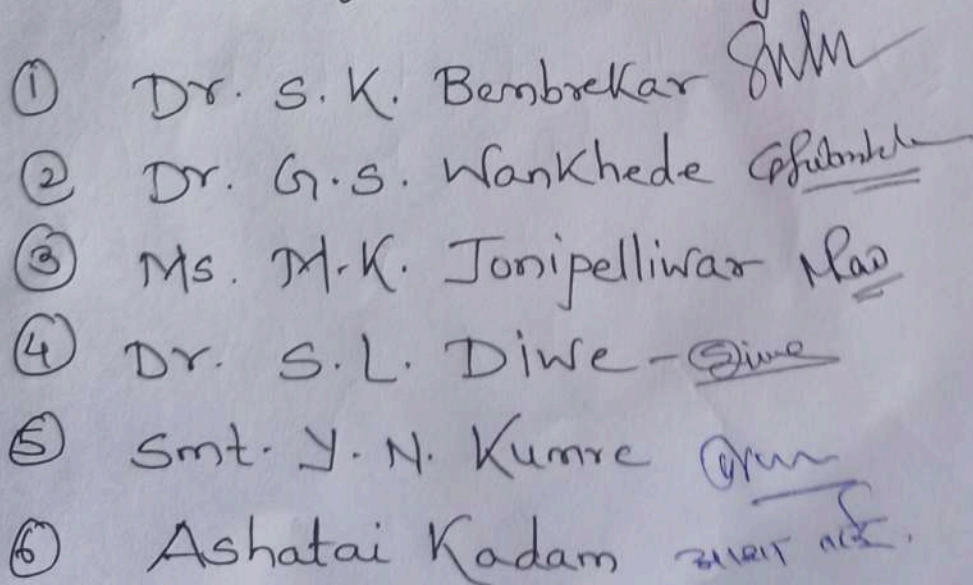 ① Dr. S. K. Bembrekar
② Dr. G. S. Wankhede
③ Ms. M. K. Jonipelliwar
④ Dr. S. L. Diwe - Diwe
⑤ Smt. Y. N. Kumre
⑥ Ashatai Kadam आशा ताई.